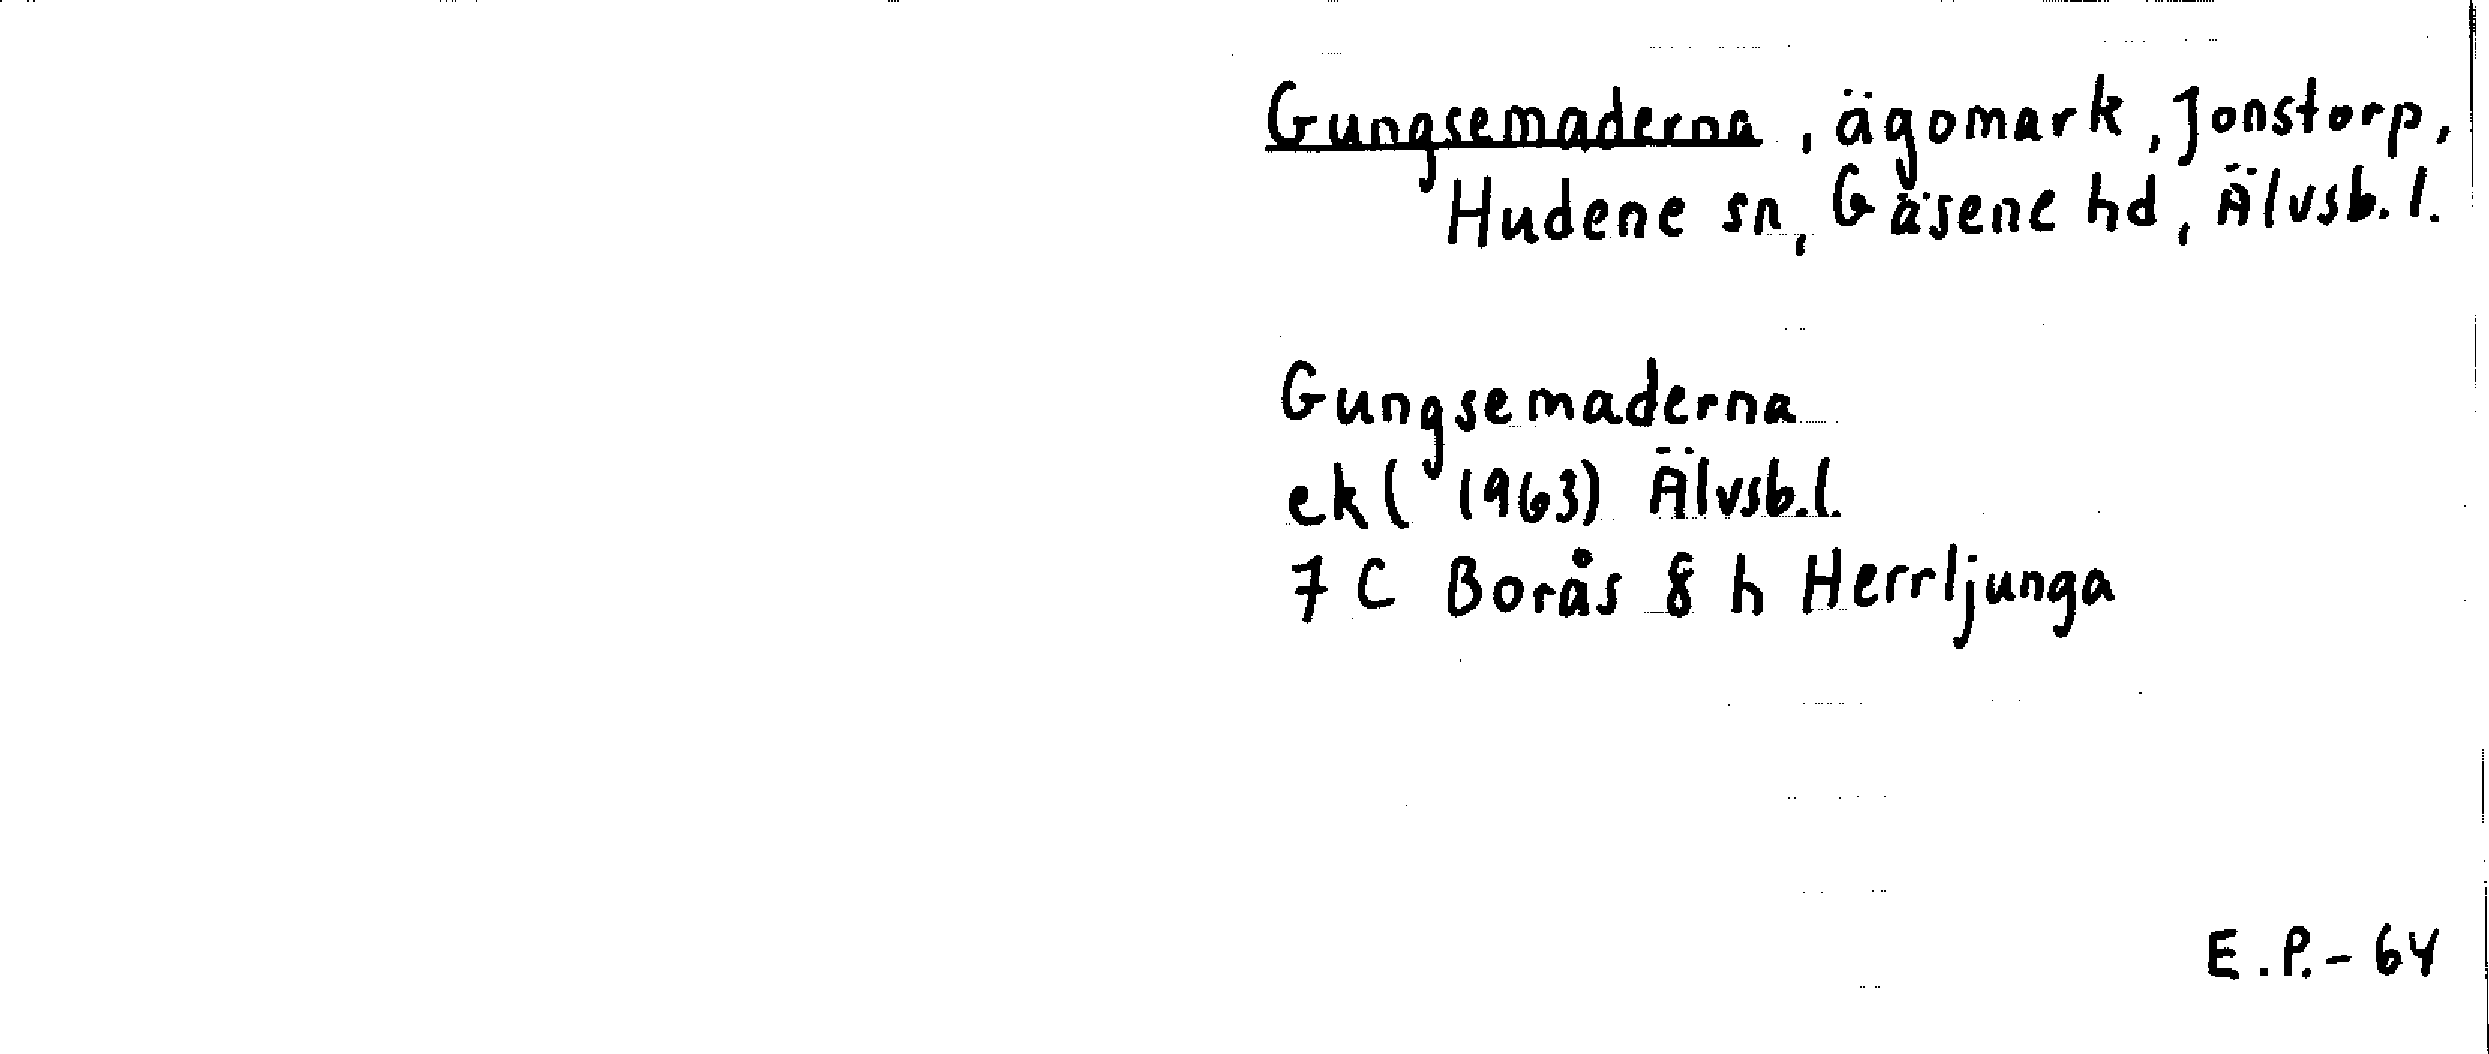 Gungsemaderna, ägomark, Jonstorp,
Hudene sn, Gäsene hd, Älvsb. l.
Gungsemaderna
ek (1963) Älvsb.l.
7 C Borås 8 h Herrljunga
E.P.-64